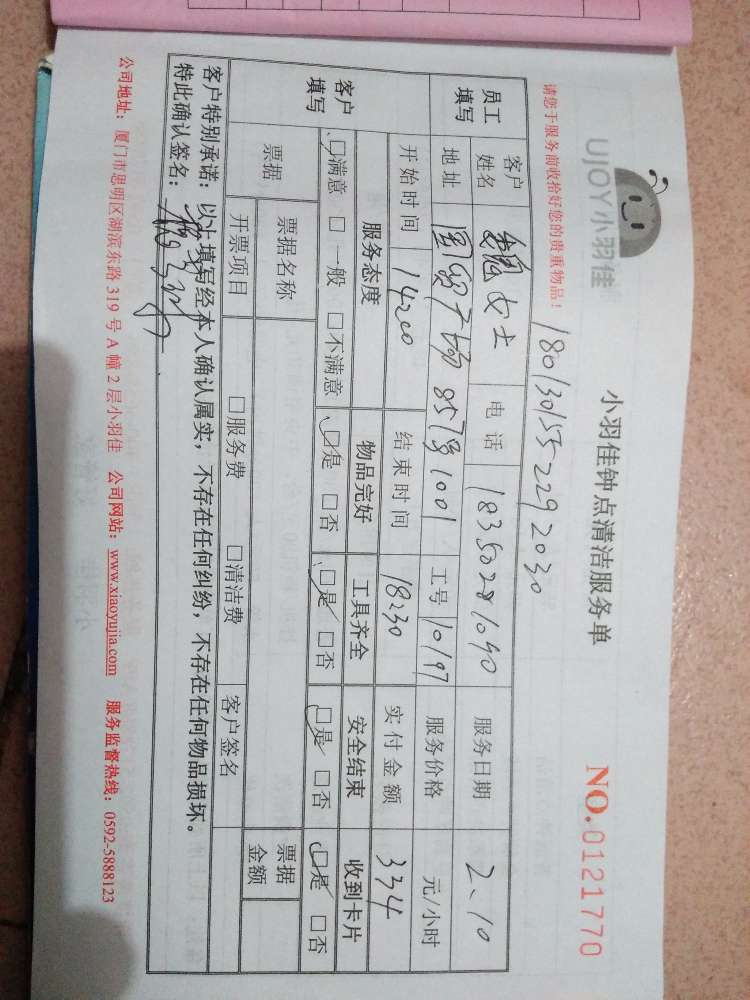 UJOY小羽佳
小羽佳钟点清洁服务单
NO.0121770
请您于服务前收拾好您的贵重物品！
180130155229 2030
员工填写 客户姓名 魏女士 电话 18350281090 服务日期 2、10
地址 国贸广场 857号1001 工号 10197 服务价格 元/小时
开始时间 14:00 结束时间 18:30 实付金额 334
客户填写 服务态度 物品完好 工具齐全 安全结束 收到卡片
☑满意 □一般 □不满意 ☑是 □否 ☑是 □否 ☑是 □否 ☑是 □否
票据 票据名称 票据金额
开票项目 □服务费 □清洁费 客户签名
客户特别承诺：以上填写经本人确认属实，不存在任何纠纷，不存在任何物品损坏。
特此确认签名：
公司地址：厦门市思明区湖滨东路 319 号 A 幢 2 层小羽佳 公司网站：www.xiaoyujia.com 服务监督热线：0592-5888123